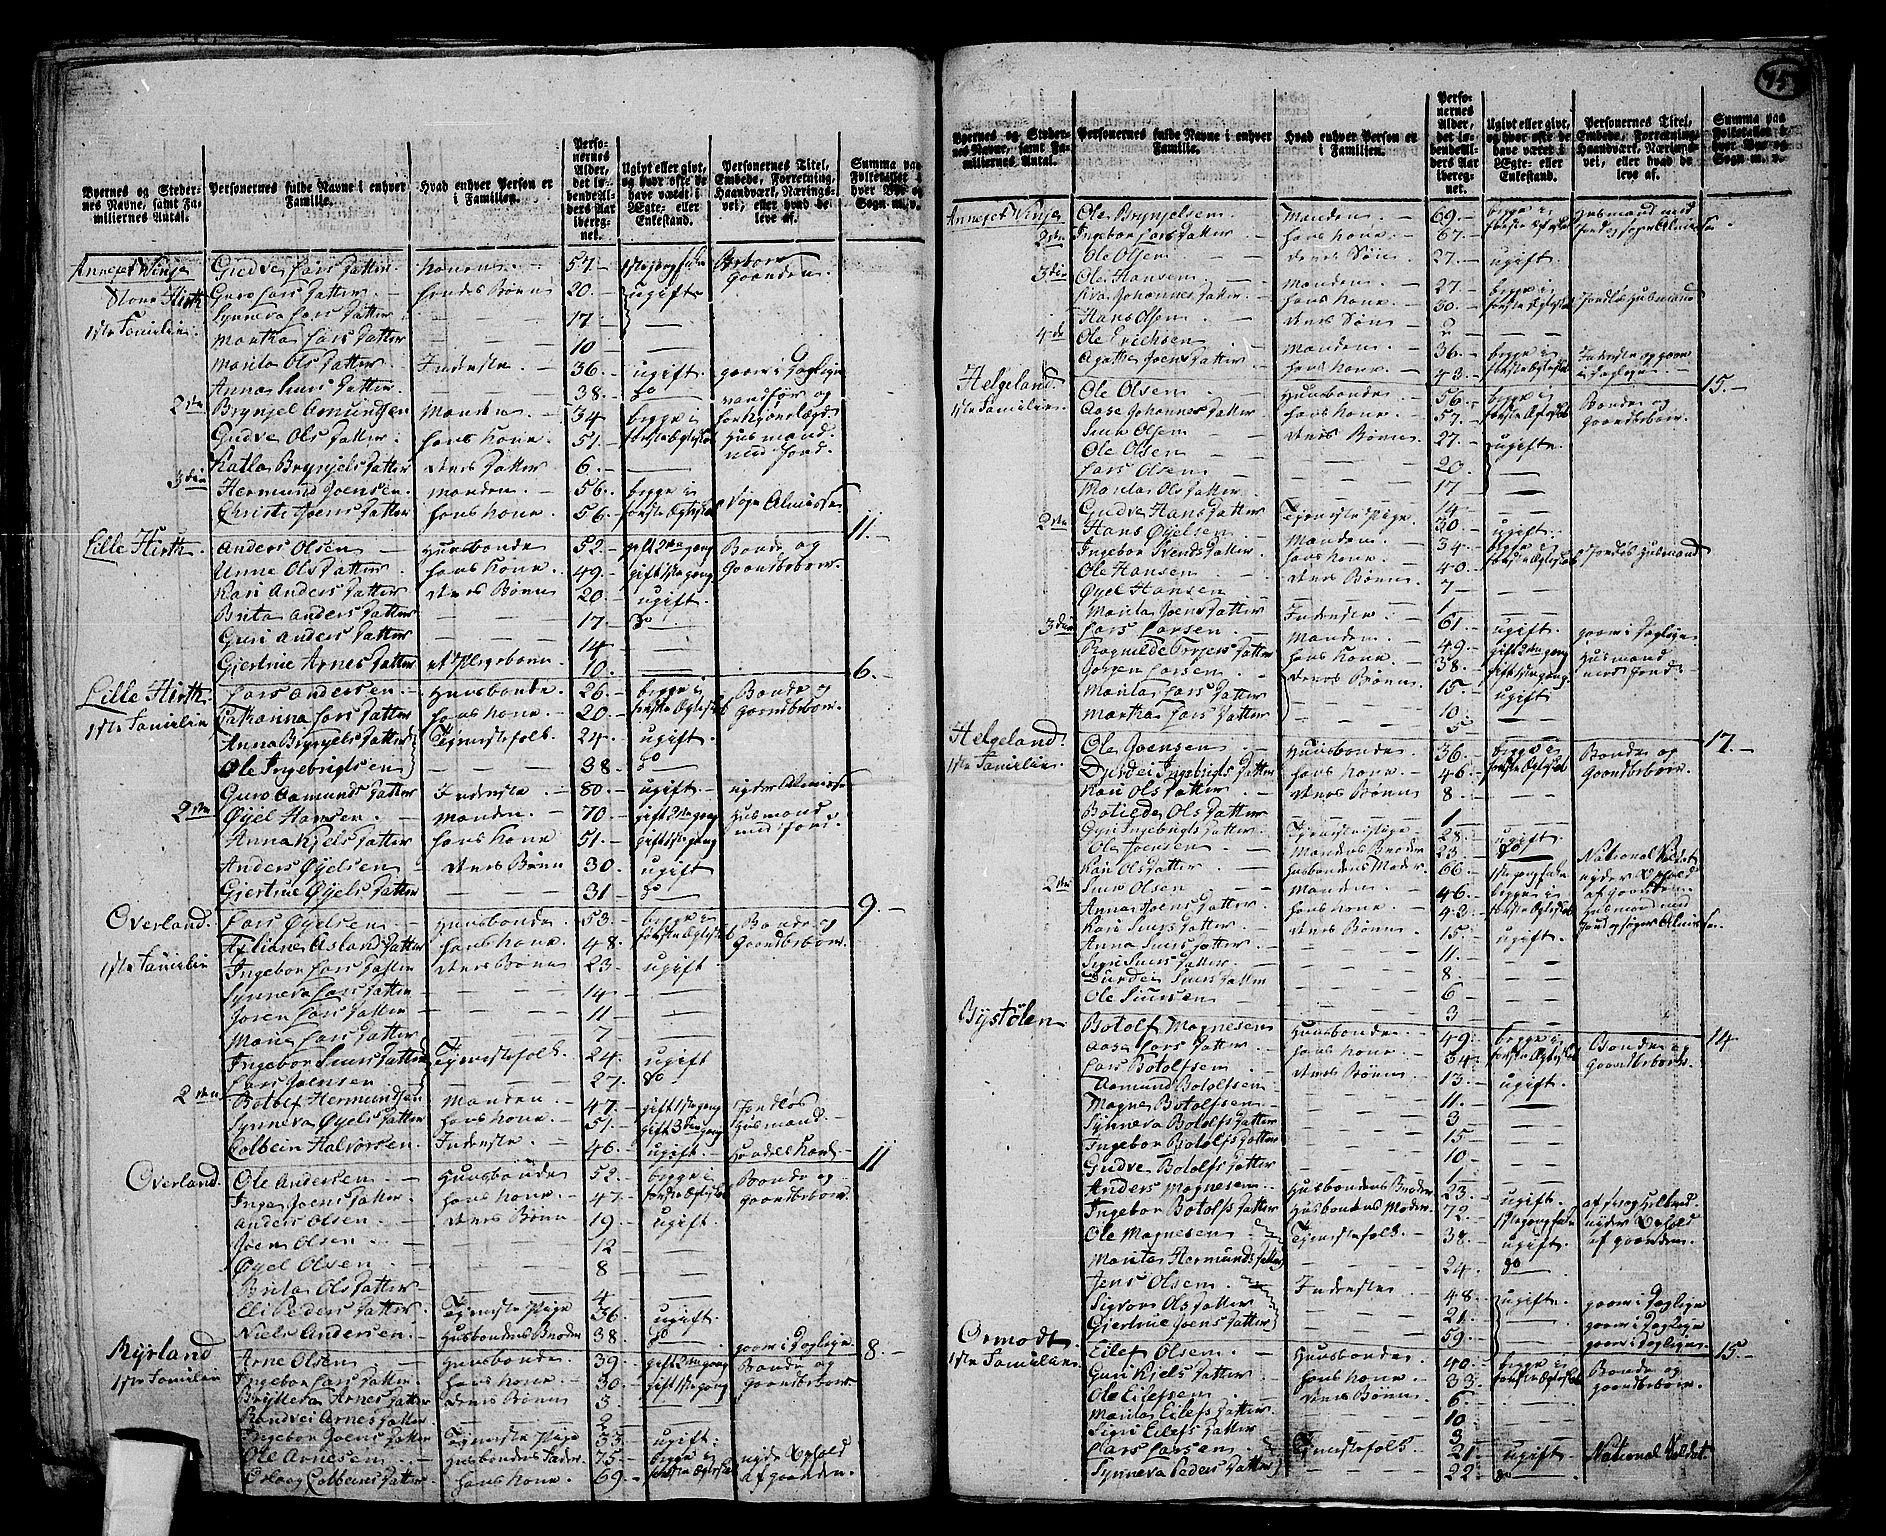 15.
Byernes og Steder-
nes Navne, samt Fa-
miliernes Antal.
Personernes fulde Navne i enhver
Familie.
Hvad enhver Person er
i Familien.
Perso-
nernes
Alder,
det lø-
bende Al-
ders Aar
iberegnet.
Ugivt eller givt,
og hvor ofte de
have været i
Ægte- eller
Enkestand.
Personernes Titel,
Embede, Forretning,
Haandværk, Nærings-
vei, eller hvad de
leve af.
Summa paa
Folketallet i
hver Bye og
Sogn m. v.
Annexet Winje Gudve Lars Datter Konen 57.
Store Hirth Guro Lars Datter hendes Børn 20. ugift
1ste Familie Synneva Lars Datter 17
Martha Lars Datter 10
Marita Ols Datter Inderste 36. ugift
Anna Lars Datter 38. do
2den Brynjel Amundsen Manden 34 begge i
Gudve Ols Datter hans Kone 51. første Ægteskab
Katla Brynjels Datter deres Datter 6
3die Hermund Joensen Manden 56. begge i
Christi Joens Datter hans Kone 56. første Ægteskab
11.
Lille Hirth Anders Olsen Huusbonde 52. Bonde og
Unne Ols Datter hans Kone 49. Gaardbeboer
Kari Anders Datter deres Børn 20. ugift
Brita Anders Datter 17 do
Guri Anders Datter 14
Giertrue Arnes Datter et Pleyebarn 10. 6.
Lille Hirth Lars Andersen Huusbonde 26. begge i Bonde og
1ste Familie Cathanna Lars Datter hans Kone 20. første Ægteskab Gaardbeboer
Anna Brynjels Datter Tjenestefolk 24. ugift
Ole Ingebrigtsen 38. do
Guro Aamunds Datter Inderste 80. ugift nyder Almisse
2den Øyel Hansen Manden 70 gift 2den gang Huusmand
Anna Kjels Datter hans Kone 51. gift 1ste gang med Jord
Anders Øyelsen deres Børn 30. ugift
Giertrue Øyels Datter 31 do 9.
Overland Lars Øyelsen Huusbonde 53. begge i Bonde og
Asland Datter hans Kone 48. første Ægteskab Gaardbeboer
1ste Familie Ingebor Lars Datter deres Børn 23. ugift
Synneva Lars Datter 14
Joren Lars Datter 11
Mari Lars Datter 7
Ingebor Siurs Datter Tjenestefolk 24. ugift
Lars Joensen 27. do
2den Botolf Hermundsen Manden 47. gift 1ste gang Jordløs
Synneva Øyels Datter hans Kone 51. gift 3die gang Huusmand
Colbein Halvorsen Inderste 46. ugift 11
Overland Ole Andersen Huusbonde 52. begge i Bonde og
Inga Joens Datter hans Kone 47. første Ægteskab gaardbeboer
Anders Olsen deres Børn 19. ugift
Joen Olsen 12
Øyel Olsen 8
Brita Ols Datter 4
Eli Peders Datter Tjeneste Pige 36. ugift
Niels Andersen Huusbondens Broder 38. do gaaer i Dagleye 8.
Rysland Arne Olsen Huusbonde 39. gift 2den gang Bonde og
1ste Familie Ingebor Lars Datter hans Kone 30. gift 1ste gang Gaardbeboer
Bryteva Arnes Datter deres Børn 3.
Randvei Arnes Datter 2
Ingebor Joens Datter Tjeneste Pige 33. ugift
Ole Arnesen Huusbondens Fader 75. begge i nyder Ophold
Colbeins Datter hans Kone 69. første Ægteskab af gaarden
Byernes og Steder-
nes Navne, samt Fa-
miliernes Antal.
Personernes fulde Navne i enhver
Familie.
Hvad enhver Person er
i Familien.
Perso-
nernes
Alder,
det lø-
bende Al-
ders Aar
iberegnet.
Ugivt eller givt,
og hvor ofte de
have været i
Ægte- eller
Enkestand.
Personernes Titel,
Embede, Forretning,
Haandværk, Nærings-
vei, eller hvad de
leve af.
Summa paa
Folketallet i
hver Bye og
Sogn m. v.
Annexet Winje Ole Brynjelsen Manden 69. begge i Huusmand med
2den Ingebor Lars Datter hans Kone 67. første Ægteskab Jord og Sogne Almisse
Ole Olsen deres Søn 27. ugift
3die Ole Hansen Manden 27. begge i
Johannes Datter hans Kone 30. første Ægteskab Jordløs Huusmand
Hans Olsen deres Søn 2
4de Ole Erichsen Manden 36. begge i Inderste og gaaer
Agatha Joens Datter hans Kone 43. første Ægteskab i Dagleye 15.
Helgeland Ole Olsen Huusbonde 56. begge i Bonde og
1ste Familie Aase Johannes Datter hans Kone 57. første Ægteskab Gaardbeboer
Siur Olsen deres Børn 27. ugift
Ole Olsen 20.
Lars Olsen 17
Marita Ols Datter 14
Gudve Hans Datter Tjeneste Pige 30. ugift
2den Hans Øyelsen Manden 34. begge i Jordløs Huusmand
Ingebor Svends Datter hans Kone 40. første Ægteskab
Ole Hansen deres Børn 7
Øyel Hansen 1
Marita Joens Datter Inderste 61. ugift gaaer i Dagleye
3die Lars Larsen Manden 49. Huusmand
Ragnilde Datter hans Kone 38. med Jord
Larsen deres Børn 15. ugift
Marita Lars Datter 10
Martha Lars Datter 5 17.
Helgeland Ole Joensen Huusbonde 36. begge i Bonde og
1ste Familie Durdei Ingebrigts Datter hans Kone 46. første Ægteskab Gaardbeboer
Kari Ols Datter deres Børn 8
Botilde Ols Datter 1
Ingebrigts Datter Tjeneste Pige 28. ugift
Ole Joensen Mandens Broder 23. do National Soldat
Kari Ols Datter Huusbondens Moder 66 nyder Ophold
2den Siur Olsen Manden 46. begge i af gaarden
Anna Joens Datter hans Kone 43. første Ægteskab Huusmand med
Kari Siurs Datter deres Børn 15. ugift Jord og søger Almisse
Anna Siurs Datter 11.
Sigri Siurs Datter 8.
Durdei Siurs Datter 6
Ole Siursen 3 14
Bystølen Botolf Magnesen Huusbonde 49. begge i Bonde og
Aase Lars Datter hans Kone 34. første Ægteskab Gaardbeboer
Lars Botolfsen deres Børn 13. ugift
Aamund Botolfsen 11.
Magne Botolfsen 3
Synneva Botolfs Datter 15
Ingebor Botolfs Datter 10
Gudve Botolfs Datter 1
Anders Magnesen Huusbondens Broder 23. ugift
Ingebor Botolfs Datter Huusbondens Moder 72. nyder Ophold
Ole Magnesen Tjenestefolk 38. ugift af gaarden
Marita Hermunds Datter 24. do
Jens Olsen Inderste 48. ugift gaaer i Dagleye
Sigvor Ols Datter 21. gaaer i Dagleye
Giertrue Joens Datter 59. gaaer i Dagleye 15.
Ormodt Eilef Olsen Huusbonde 40. begge i Bonde og
1ste Familie Guri Kjels Datter hans Kone 33. første Ægteskab gaardbeboer
Ole Eilefsen deres Børn 6
Marita Eilefs Datter 10
Sigri Eilefs Datter 3
Lars Larsen Tjenestefolk 21. ugift National Soldat
Synneva Peders Datter 22 do